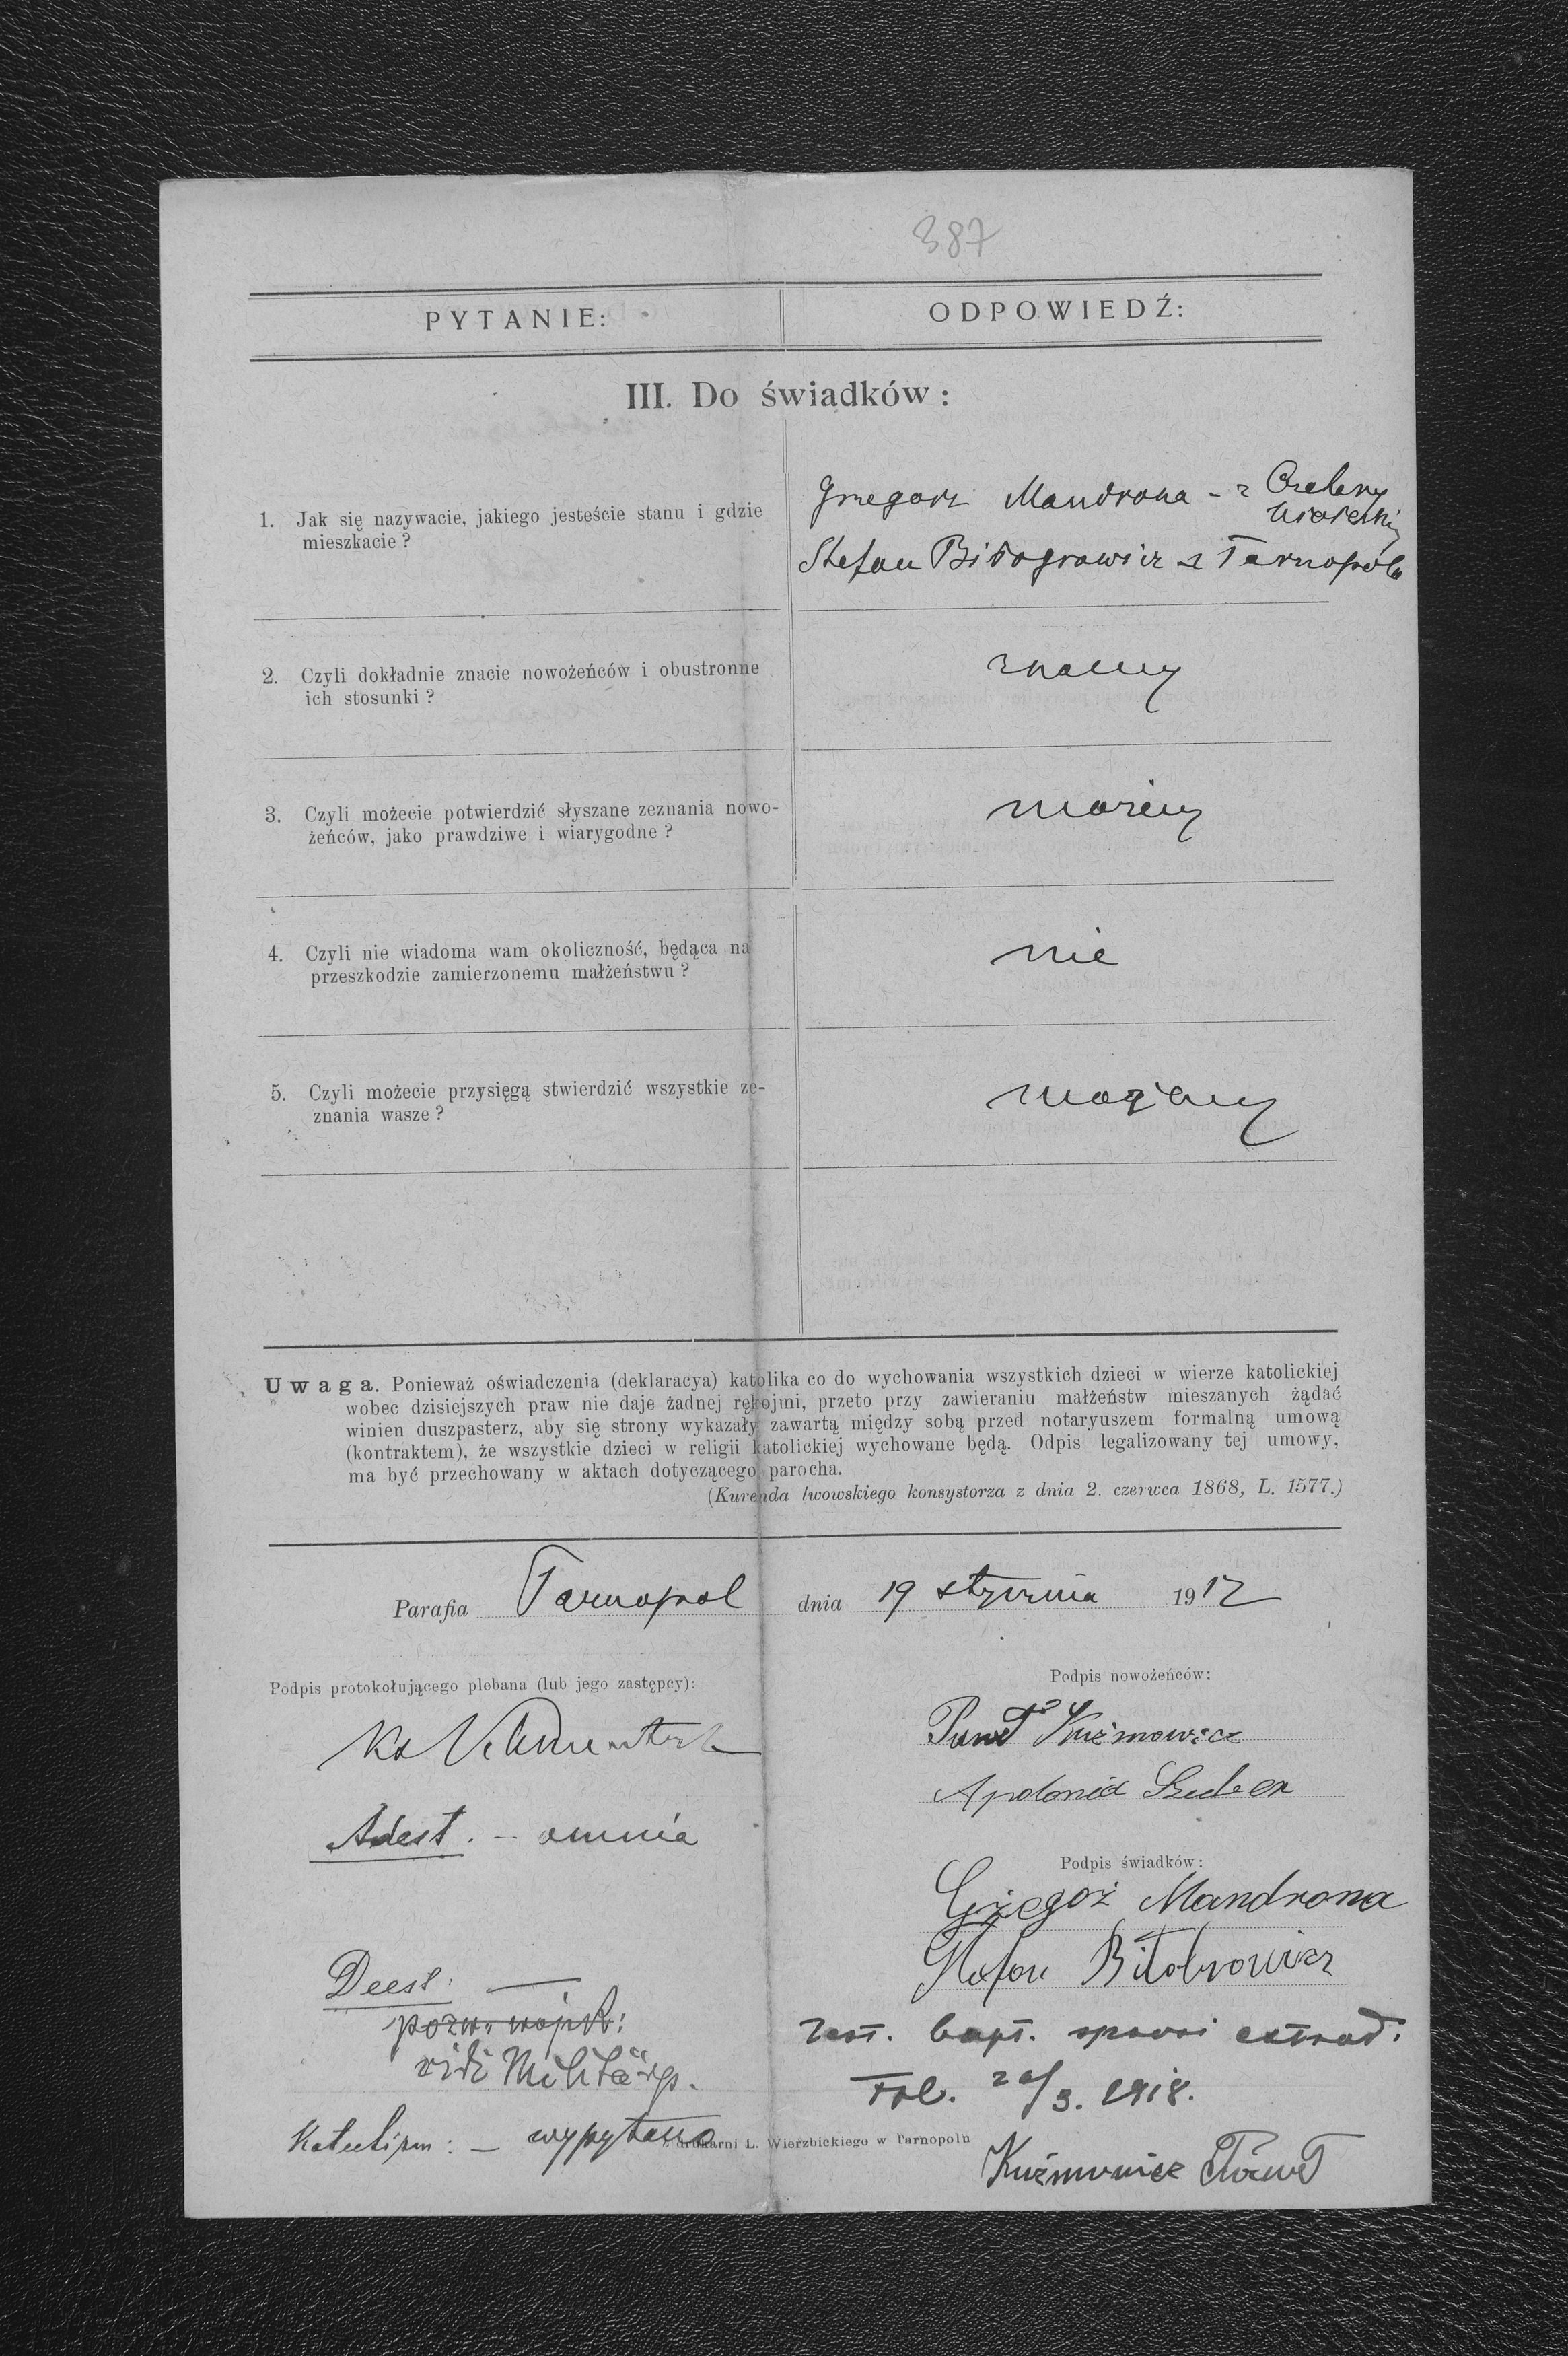 387
PYTANIE:
ODPOWIEDŹ:
III. Do świadków:
1. Jak się nazywacie, jakiego jesteście stanu i gdzie
mieszkacie?
Grzegorz Mandrona - z
Stefan z Tarnopola
2. Czyli dokładnie znacie nowożeńców i obustronne
ich stosunki?
znamy
3. Czyli możecie potwierdzić słyszane zeznania nowo-
żeńców, jako prawdziwe i wiarygodne?
możemy
4. Czyli nie wiadoma wam okoliczność, będąca na
przeszkodzie zamierzonemu małżeństwu?
nie
5. Czyli możecie przysięgą stwierdzić wszystkie ze-
znania wasze?
możemy
Uwaga. Ponieważ oświadczenia (deklaracya) katolika co do wychowania wszystkich dzieci w wierze katolickiej
wobec dzisiejszych praw nie daje żadnej rękojmi, przeto przy zawieraniu małżeństw mieszanych żądać
winien duszpasterz, aby się strony wykazały zawartą między sobą przed notaryuszem formalną umową
(kontraktem), że wszystkie dzieci w religii katolickiej wychowane będą. Odpis legalizowany tej umowy,
ma być przechowany w aktach dotyczącego parocha.
(Kurenda lwowskiego konsystorza z dnia 2. czerwca 1868, L. 1577.)
Parafia Tarnopol dnia 19 stycznia 1912
Podpis protokołującego plebana (lub jego zastępcy):
Podpis nowożeńców:
Ks
Paweł Kuźmowicz
Apolonia
Adest. - omnia
Podpis świadków:
Gżegoż Mandrona
Stefan Biłobrowicz
Deest: —
pozw. wojsk:
vidi Militärp.
Test. bapt. sponsi extrad.
20/3. 1918.
Katechizm: — wypytano
drukarni L. Wierzbickiego w Tarnopolu
Kuźmowicz Paweł